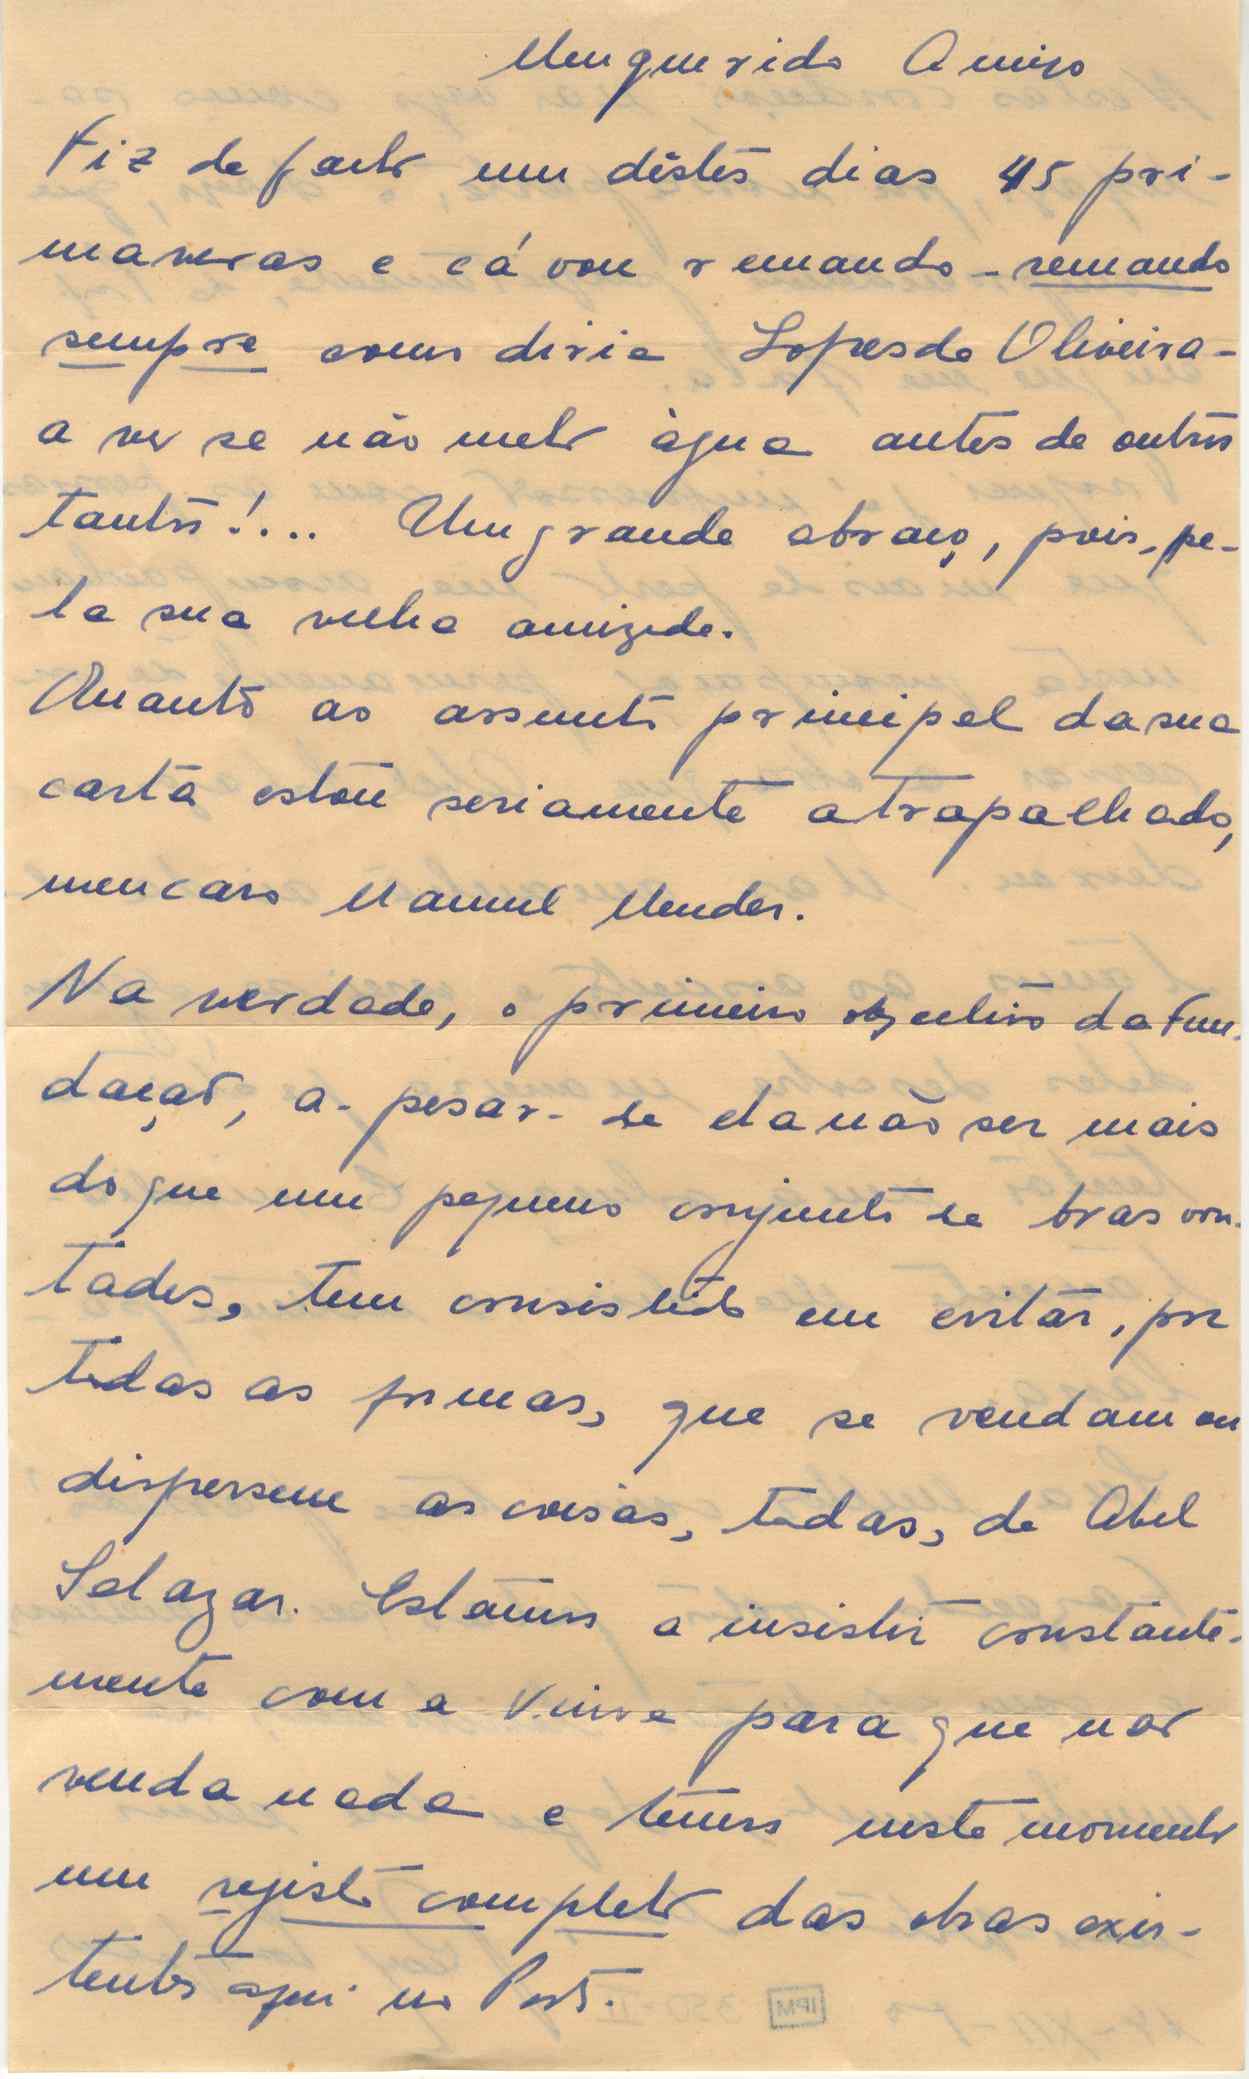 Meu querido Amigo
Fiz de facto um dêstes dias 45 pri-
maveras e cá vou remando - remando
sempre como diria Lopes de Oliveira -
a ver se não meto àgua antes de outros
tantos!... Um grande abraço, pois, pe-
la sua velha amizade.
Quanto ao assunto principal da sua
carta estou seriamente atrapalhado,
meu caro Manuel Mendes.
Na verdade, o primeiro objectivo da Fun-
dação, a-pesar-de ela não ser mais
do que um pequeno conjunto de boas von-
tades, tem consistido em evitar, por
todas as formas, que se vendam ou
dispersem as coisas, todas, de Abel
Salazar. Estamos a insistir constante-
mente com a Viuva para que não
venda nada e temos neste momento
um registo completo das obras exis-
tentes aqui no Porto.
IPM